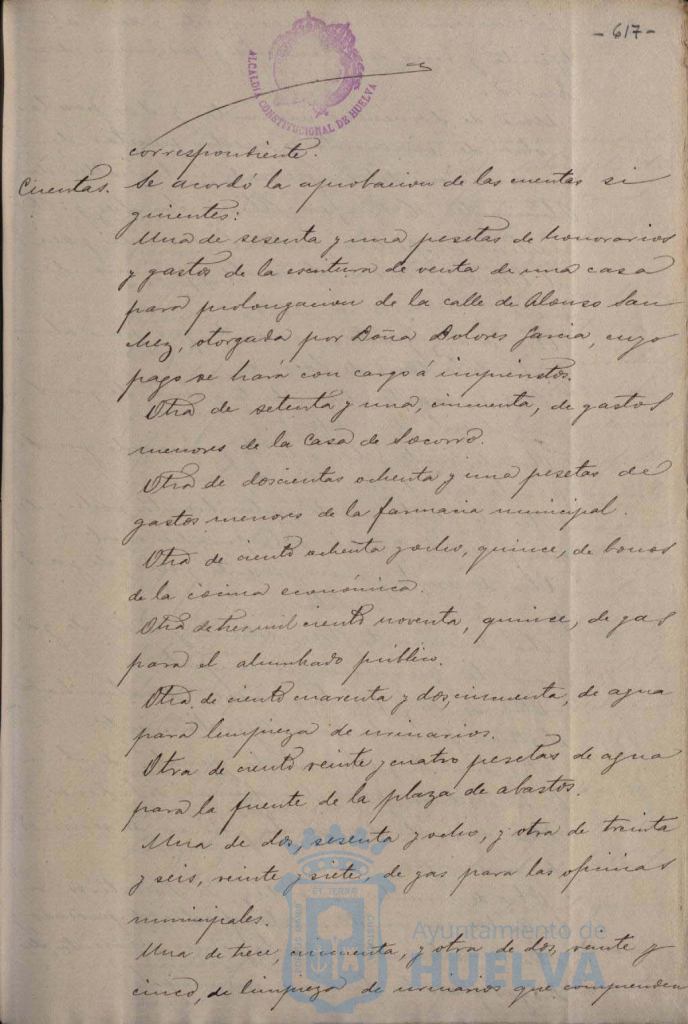 - 617 -
ALCALDIA CONSTITUCIONAL DE HUELVA
correspondiente.
Cuentas. Se acordó la aprobacion de las cuentas si
guientes:
Una de sesenta y una pesetas de honorarios
y gastos de la escritura de venta de una casa
para prolongacion de la calle de Alonso San
chez, otorgada por Doña Dolores Garcia, cuyo
pago se hará con cargo á imprevistos.
Otra de setenta y una, cincuenta, de gastos
menores de la Casa de Socorro.
Otra de doscientas ochenta y una pesetas de
gastos menores de la farmacia municipal.
Otra de ciento ochenta y ocho, quince, de bonos
de la cocina económica.
Otra de tres mil ciento noventa, quince, de gas
para el alumbrado público.
Otra, de ciento cuarenta y dos, cincuenta, de agua
para limpieza de urinarios.
Otra de ciento veinte y cuatro pesetas de agua
para la fuente de la plaza de abastos.
Una de dos, sesenta y ocho, y otra de treinta
y seis, veinte y siete, de gas para las oficinas
municipales.
Una de trece, cincuenta, y otra de dos, veinte y
cinco, de limpieza de urinarios que comprenden
Ayuntamiento de
HUELVA